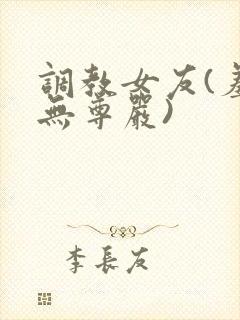 調教女友(羞
無尊嚴)
李長友